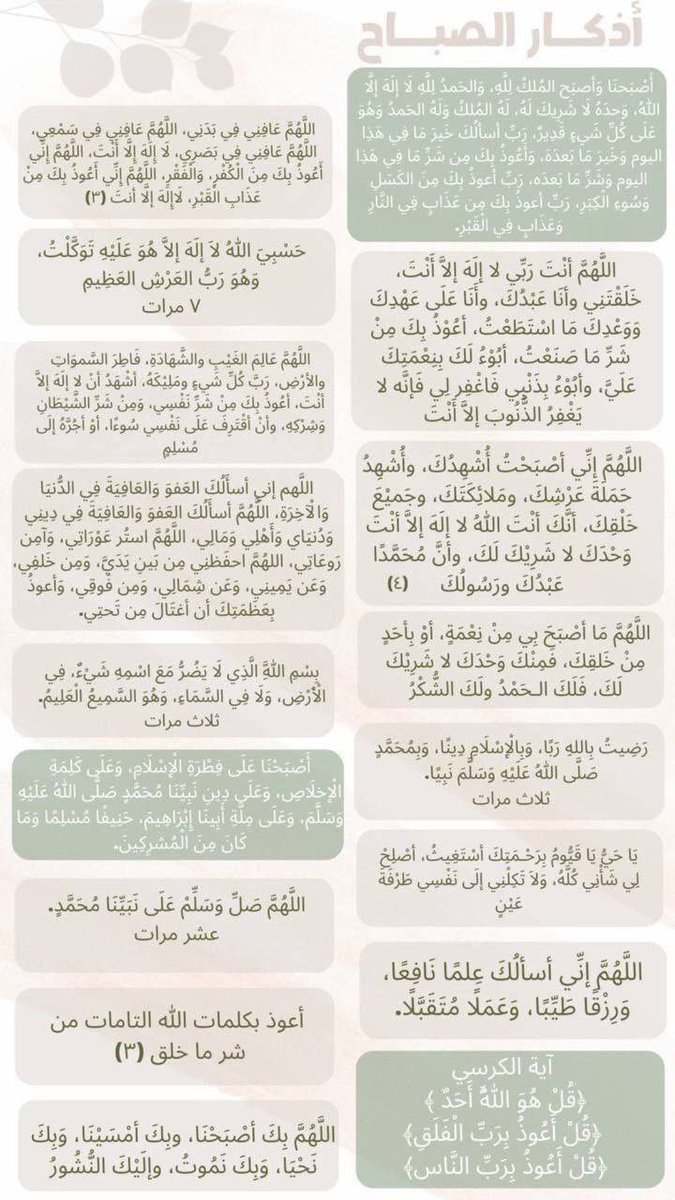 أذكـار الصبـاح
أَصْبَحنَا وَأَصبَح المُلكُ لِلَّهِ، وَالحَمدُ لِلَّهِ لَا إِلَهَ إِلَّا
اللهُ، وَحدَهُ لَا شَرِيكَ لَهُ، لَهُ المُلكُ وَلَهُ الحَمدُ وَهُوَ
عَلَى كُلِّ شَيءٍ قَدِيرٌ، رَبِّ أَسأَلُكَ خَيرَ مَا فِي هَذَا
اليوم وَخَيرَ مَا بَعدَهُ، وَأَعُوذُ بِكَ مِن شَرِّ مَا فِي هَذَا
اليوم وَشَرِّ مَا بَعدَه، رَبِّ أَعوذُ بكَ مِنَ الكَسَلِ
وَسُوءِ الكِبَرِ، رَبِّ أعوذُ بِكَ مِن عَذَابٍ فِي النَّارِ
وَعَذَابٍ فِي الْقَبْرِ.
اللَّهُمَّ أَنْتَ رَبِّي لا إِلَهَ إلاَّ أَنْتَ،
خَلَقْتَنِي وأنَا عَبْدُكَ، وأَنَا عَلَى عَهْدِكَ
وَوَعْدِكَ مَا اسْتَطَعْتُ، أعُوْذُ بِكَ مِنْ
شَرِّ مَا صَنَعْتُ، أبُوْءُ لَكَ بِنِعْمَتِكَ
عَلَيَّ، وأَبُوْءُ بِذَنْبِي فَاغْفِر لِي فَإِنَّه لا
يَغْفِرُ الذُّنُوبَ إِلاَّ أَنْتَ
اللَّهُمَّ إِنِّي أصْبَحْتُ أُشْهِدُكَ، وأُشْهِدُ
حَمَلَةَ عَرْشِكَ، ومَلائِكَتَكَ، وجَمِيْعَ
خَلْقِكَ، أنَّكَ أنْتَ اللهُ لا إلَهَ إلاَّ أنْتَ
وَحْدَكَ لا شَرِيْكَ لَكَ، وأنَّ مُحَمَّدًا
عَبْدُكَ ورَسُولُكَ (٤)
اللَّهُمَّ مَا أصْبَحَ بِي مِنْ نِعْمَةٍ، أوْ بِأحَدٍ
مِنْ خَلقِكَ، فَمِنْكَ وَحْدَكَ لا شَرِيْكَ
لَكَ، فَلَكَ الـحَمْدُ ولَكَ الشُّكْرُ
رَضِيتُ بِاللهِ رَبًا، وَبِالْإِسْلَامِ دِينًا، وَبِمُحَمَّدٍ
صَلَّى اللَّهُ عَلَيْهِ وَسَلَّمَ نَبِيًا.
ثلاث مرات
يَا حَيُّ يَا قَيُّومُ بِرَحْـمَتِكَ أَسْتَغِيثُ، أَصْلِحْ
لِي شَأْنِي كُلَّهُ، وَلَا تَكِلْنِي إِلَى نَفْسِي طَرْفَةَ
عَيْنٍ
اللَّهُمَّ إِنِّي أسألُكَ عِلمًا نَافِعًا،
وَرِزْقًا طَيِّبًا، وَعَمَلًا مُتَقَبَّلًا.
آية الكرسي
﴿قُلْ هُوَ اللَّهُ أَحَدٌ ﴾
﴿قُلْ أَعُوذُ بِرَبِّ الْفَلَقِ﴾
﴿قُلْ أَعُوذُ بِرَبِّ النَّاس﴾
اللَّهُمَّ عَافِنِي فِي بَدَنِي، اللَّهُمَّ عَافِنِي فِي سَمْعِي،
اللَّهُمَّ عَافِنِي فِي بَصَرِي، لَا إِلَهَ إِلَّا أَنْتَ، اللَّهُمَّ إِنِّي
أَعُوذُ بِكَ مِنَ الْكُفْرِ، وَالْفَقْرِ، اللَّهُمَّ إِنِّي أَعُوذُ بِكَ مِنْ
عَذَابِ الْقَبْرِ، لَاإِلَهَ إِلَّا أَنتَ (٣)
حَسْبِيَ اللهُ لاَ إِلَهَ إِلاَّ هُوَ عَلَيْهِ تَوَكَّلْتُ،
وَهُوَ رَبُّ العَرْشِ العَظِيمِ
٧ مرات
اللَّهُمَّ عَالِمَ الغَيْبِ والشَّهَادَةِ، فَاطِرَ السَّموَاتِ
والأرْضِ، رَبَّ كُلِّ شَيءٍ ومَلِيْكَهُ، أشْهَدُ أنْ لا إلَهَ إلاَّ
أنْتَ، أعُوذُ بِكَ مِنْ شَرِّ نَفْسِي، وَمِنْ شَرِّ الشَّيْطَانِ
وَشِرْكِهِ، وأنْ أقْتَرِفَ عَلَى نَفْسِي سُوءًا، أوْ أجُرَّهُ إلَى
مُسْلِمٍ
اللَّهم إني أَسألُكَ العَفوَ وَالعَافِيَةَ فِي الدُّنيَا
وَالْآخِرَةِ، اللَّهُمَّ أَسأَلُكَ العَفوَ وَالعَافِيَةَ فِي دِينِي
وَدُنيَاي وَأَهْلِي وَمَالِي، اللَّهُمَّ استُر عَوْرَاتِي، وَآمِن
رَوعَاتِي، اللهُمَّ احفَظنِي مِن بَينِ يَدَيَّ، وَمِن خَلفِي،
وَعَن يَمِينِي، وَعَن شِمَالِي، وَمِن فَوقِي، وَأَعوذُ
بِعَظَمَتِكَ أَن أُغتَالَ مِن تَحتِي.
بِسْمِ اللهِ الَّذِي لَا يَضُرُّ مَعَ اسْمِهِ شَيْءٌ، فِي
الْأَرْضِ، وَلَا فِي السَّمَاءِ، وَهُوَ السَّمِيعُ الْعَلِيمُ.
ثلاث مرات
أَصْبَحْنَا عَلَى فِطْرَةِ الْإِسْلَامِ، وَعَلَى كَلِمَةِ
الْإِخلَاصِ، وَعَلَى دِينِ نَبِيِّنَا مُحَمَّدٍ صَلَّى اللَّهُ عَلَيْهِ
وَسَلَّمَ، وَعَلَى مِلَّةِ أَبِينَا إِبْرَاهِيمَ، حَنِيفًا مُسْلِمًا وَمَا
كَانَ مِنَ الْمُشرِكِينَ.
اللَّهُمَّ صَلِّ وَسَلِّمْ عَلَى نَبِيِّنَا مُحَمَّدٍ.
عشر مرات
أعوذ بكلمات الله التامات من
شر ما خلق (٣)
اللَّهُمَّ بِكَ أصْبَحْنَا، وبِكَ أمْسَيْنَا، وَبِكَ
نَحْيَا، وَبِكَ نَمُوتُ، وإلَيْكَ النُّشُورُ